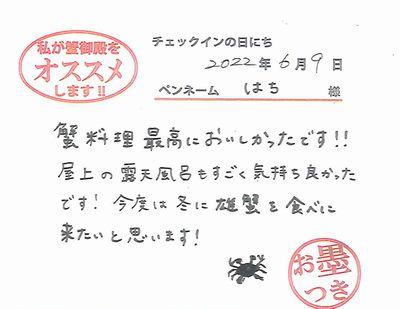 私が蟹御殿を
オススメ
します!!
チェックインの日にち
2022年6月9日
ペンネーム はち 様
蟹料理最高においしかったです!!
屋上の露天風呂もすごく気持ち良かった
です! 今度は冬に雄蟹を食べに
来たいと思います!
お墨
つき